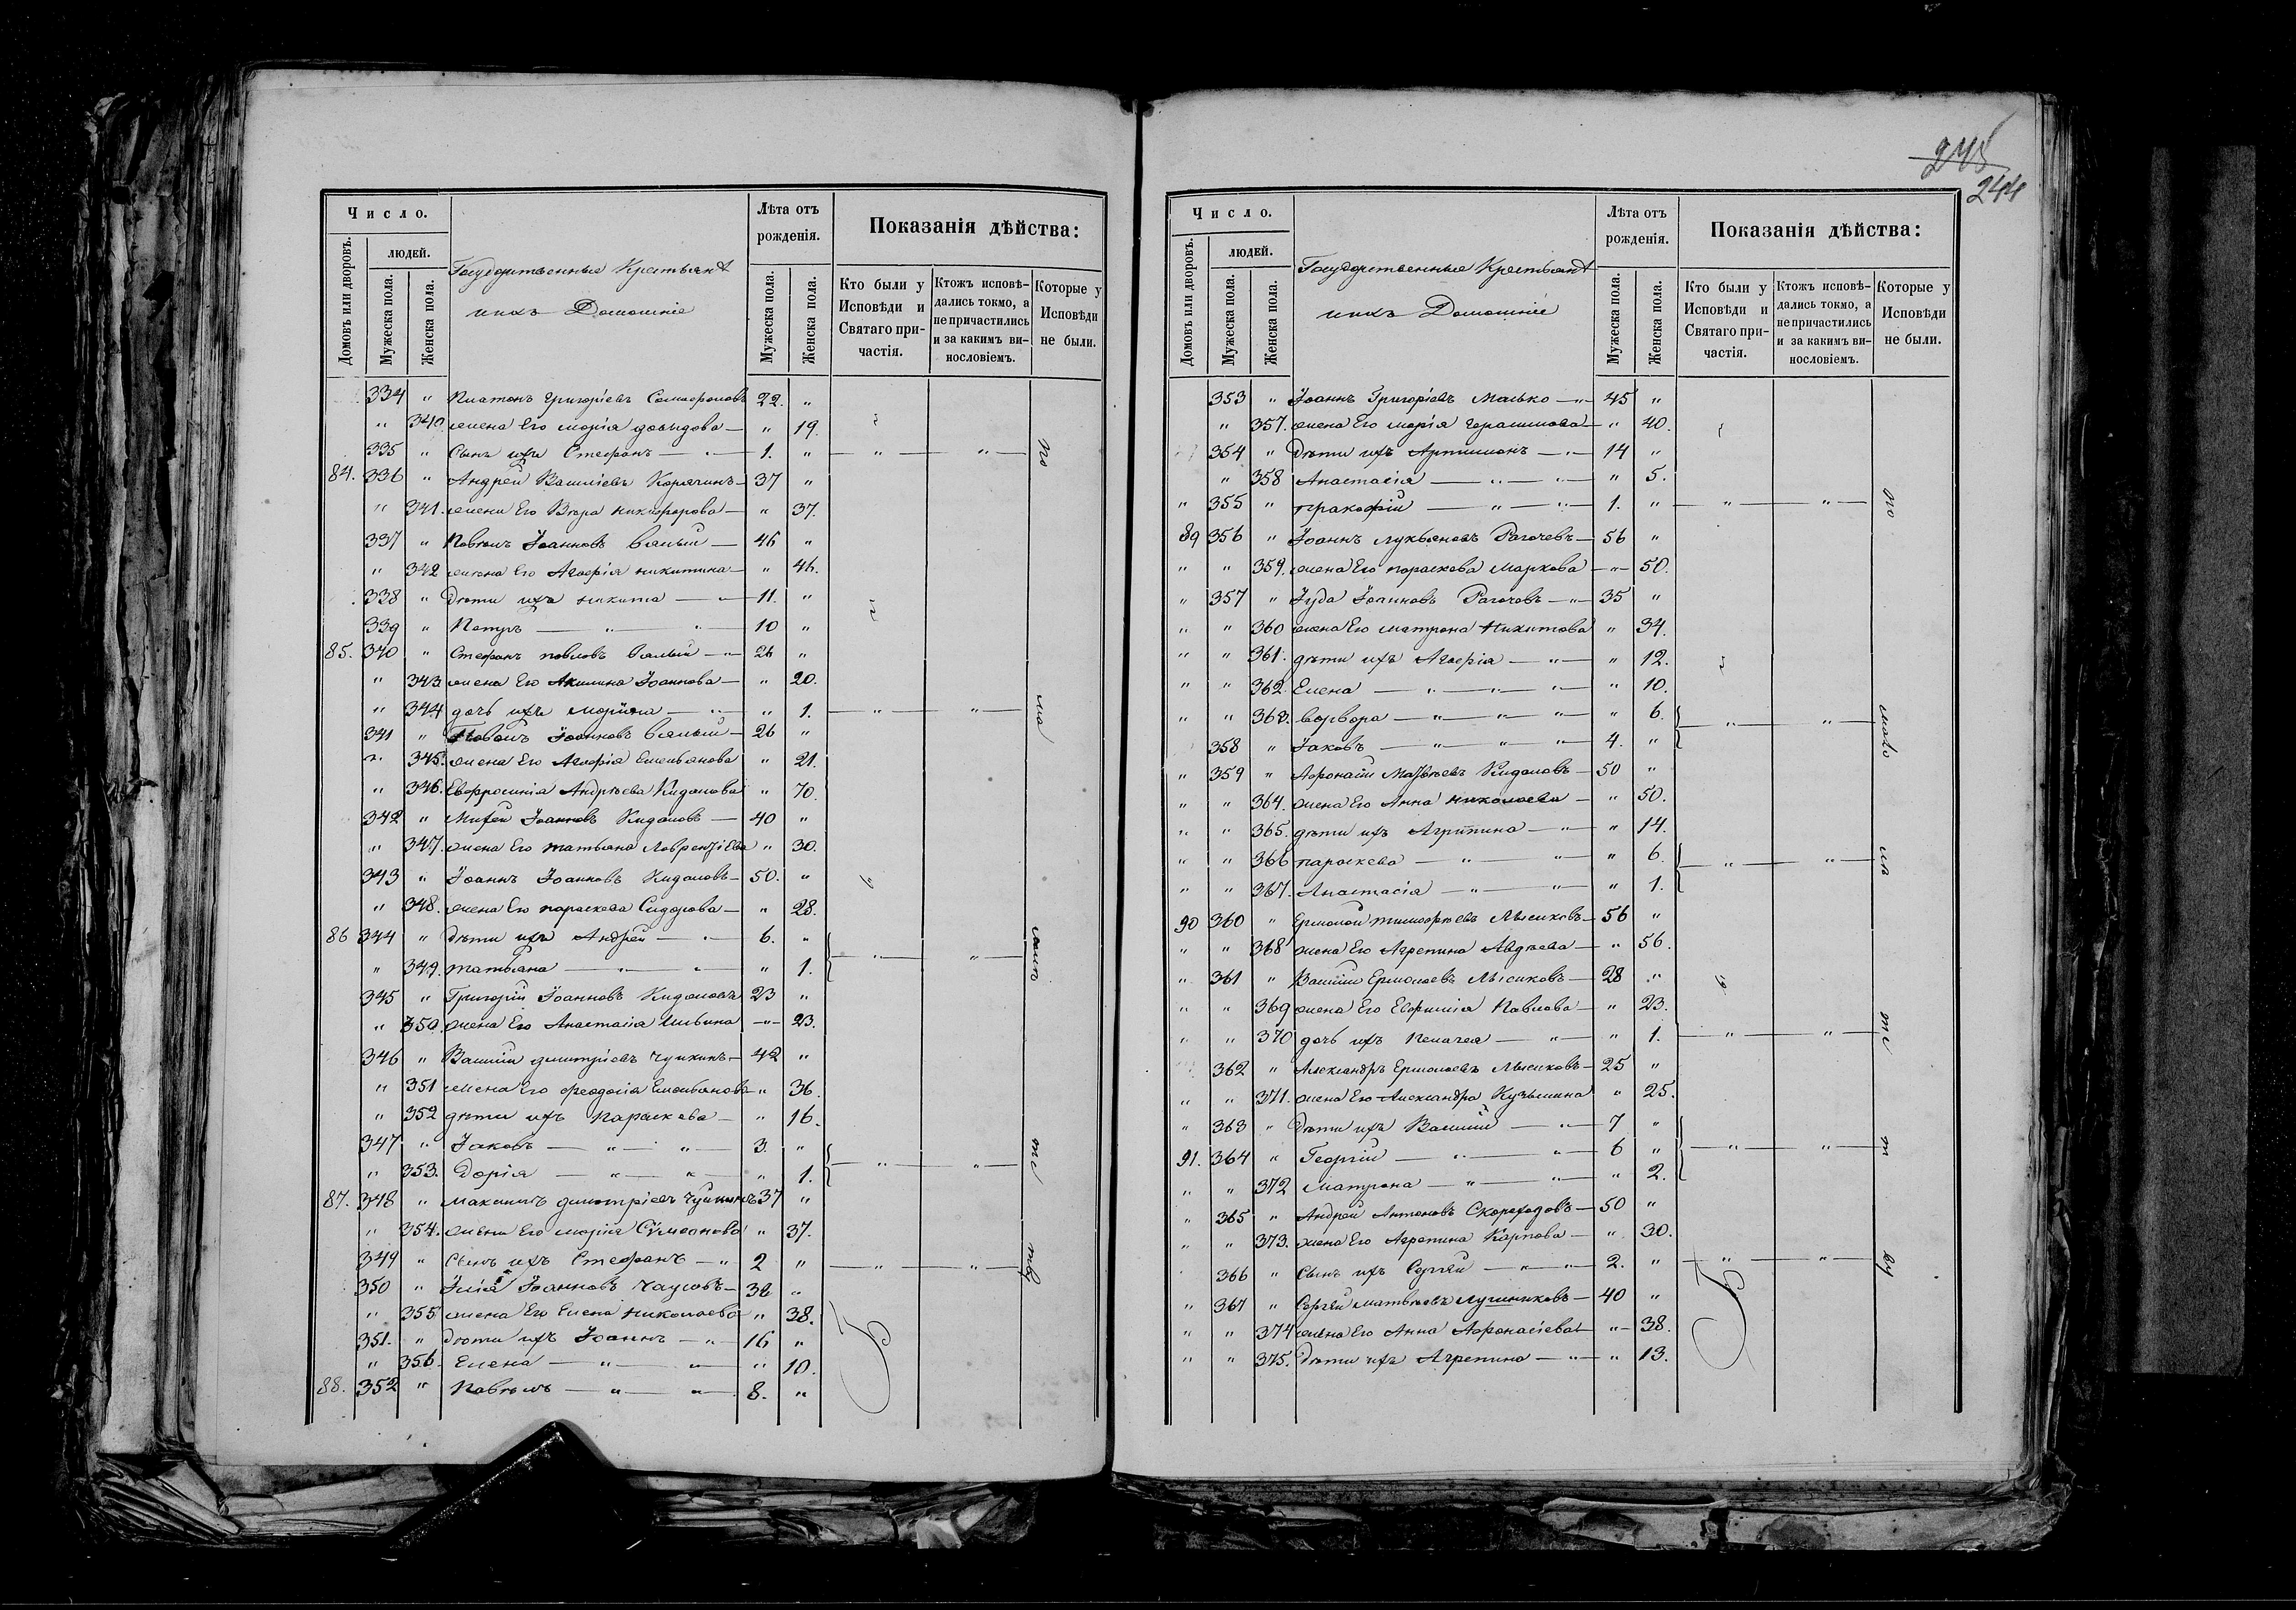 Число.
людей.
Домовъ или дворовъ.
Мужеска пола.
Женска пола.
Государственные Крестьяне
ихъ Домашніе
Лѣта отъ рожденія.
Мужеска пола.
Женска пола.
Показанія дѣйства:
Кто были у Исповѣди и Святаго причастія.
Ктожъ исповѣдались токмо, а не причастились и за какимъ винословіемъ.
Которые у Исповѣди не были.
334 " Платонъ Григоріевъ 22. "
" 340. жена Его Марія Давыдова — " 19.
335 " Сынъ ихъ Стефанъ — " — 1. "
84. 336 " Андрей Василіевъ Корячинъ — 37 "
" 341. жена Его Вѣра Никифорова — " 37.
337 " Павелъ Іоанновъ — 46 "
" 342 жена Его Агафія Никитина — " 46.
338 " Дѣти ихъ Никита — " — 11. "
339 " Петръ — " — " — 10 "
85. 340 " Стефанъ Павловъ — " 26 "
" 343. жена Его Акилина Іоаннова — " 20.
" 344 дочь ихъ — " — " 1.
341 " Іоанновъ — 26 "
" 345. жена Его Агафія Емельянова " 21.
" 346. Евфросинія Андрѣева Кидалова " 70.
342 " Іоанновъ Кидаловъ — 40 "
" 347. жена Его Татьяна Лаврентіева " 30.
343 " Іоаннъ Іоанновъ Кидаловъ — 50. "
" 348. жена Его Параскева Сидорова — " 28.
86 344 " Дѣти ихъ Андрей — " — 6. "
" 349. Татьяна — " — " — " 1.
345 " Григорій Іоанновъ Кидаловъ 23 "
" 350. жена Его Анастасія Ильина — " — 23.
346 " Василій Димитріевъ Чушкинъ — 42 "
" 351 жена Его Феодосія Емельянова — " 36.
" 352 дѣти ихъ Параскева — " 16.
347 " Іаковъ — " — " — 3. "
" 353. Дарія — " — " — " 1.
87. 348 " Максимъ Димитріевъ 37 "
" 354. жена Его Марія Сѵмеонова " 37.
349 " Сынъ ихъ Стефанъ — " 2 "
350 " Илія Іоанновъ Чаусовъ — 38 "
" 355. жена Его Елена Николаева " 38.
351. " Дѣти ихъ Іоаннъ — " — 16 "
" 356. Елена — " — " — " 10.
88. 352 " Павелъ — " — " — 8. "
245
244
Число.
людей.
Домовъ или дворовъ.
Мужеска пола.
Женска пола.
Государственные Крестьяне
ихъ Домашніе
Лѣта отъ рожденія.
Мужеска пола.
Женска пола.
Показанія дѣйства:
Кто были у Исповѣди и Святаго причастія.
Ктожъ исповѣдались токмо, а не причастились и за какимъ винословіемъ.
Которые у Исповѣди не были.
353 " Іоаннъ Григоріевъ Малько — " — 45 "
" 357. жена Его Марія Герасимова — " 40.
354 " Дѣти ихъ — " — 14 "
" 358 Анастасія — " — " — " 5.
" 355 " Пракофій — " — " — 1. "
89 356 " Іоаннъ Лукьяновъ Рагачевъ — 56 "
" " 359. жена Его Параскева Маркова — " — 50.
" 357 " Іуда Іоанновъ Рагачовъ — " — 35 "
" " 360 жена Его Матрона Никитова " 34.
" " 361. дѣти ихъ Агафія — " — " 12.
" " 362. Елена — " — " — " — " 10.
" " 363. Варвара — " — " — " — " 6.
358 " Іаковъ — " — " — " — 4. "
" 359 " Афонасій Матвѣевъ Кидаловъ — 50 "
" " 364. жена Его Анна Николаева — " 50.
" " 365. дѣти ихъ Агрипина — " — " 14.
" " 366 Параскева — " — " — " 6.
" " 367. Анастасія — " — " — " 1.
90 360 " Ермолай Тимофѣевъ Лысиковъ — 56 "
" " 368 жена Его Агрепина Авдѣева — " 56.
" 361 " Василій Ермолаевъ Лысиковъ — 28 "
" " 369 жена Его Евфимія Павлова — " 23.
" " 370 дочь ихъ Пелагея — " — " 1.
362 " Александръ Ермолаевъ Лысиковъ — 25 "
" " 371. жена Его Александра Кузьмина " 25.
" 363 " Дѣти ихъ Василій — " — 7 "
91. 364 " Георгій — " — " — 6 "
" " 372 Матрона — " — " — " 2.
" 365 " Андрей Антоновъ Скороходовъ — 50 "
" " 373. жена Его Агрепина Карпова — " 30.
366 " Сынъ ихъ Сергѣй — " — " — 2. "
" 367 " Сергѣй Матвѣевъ Лушниковъ — 40 "
" " 374 жена Его Анна Афонасіева — " — 38.
" " 375. Дѣти ихъ Агрепина — " — " 13.